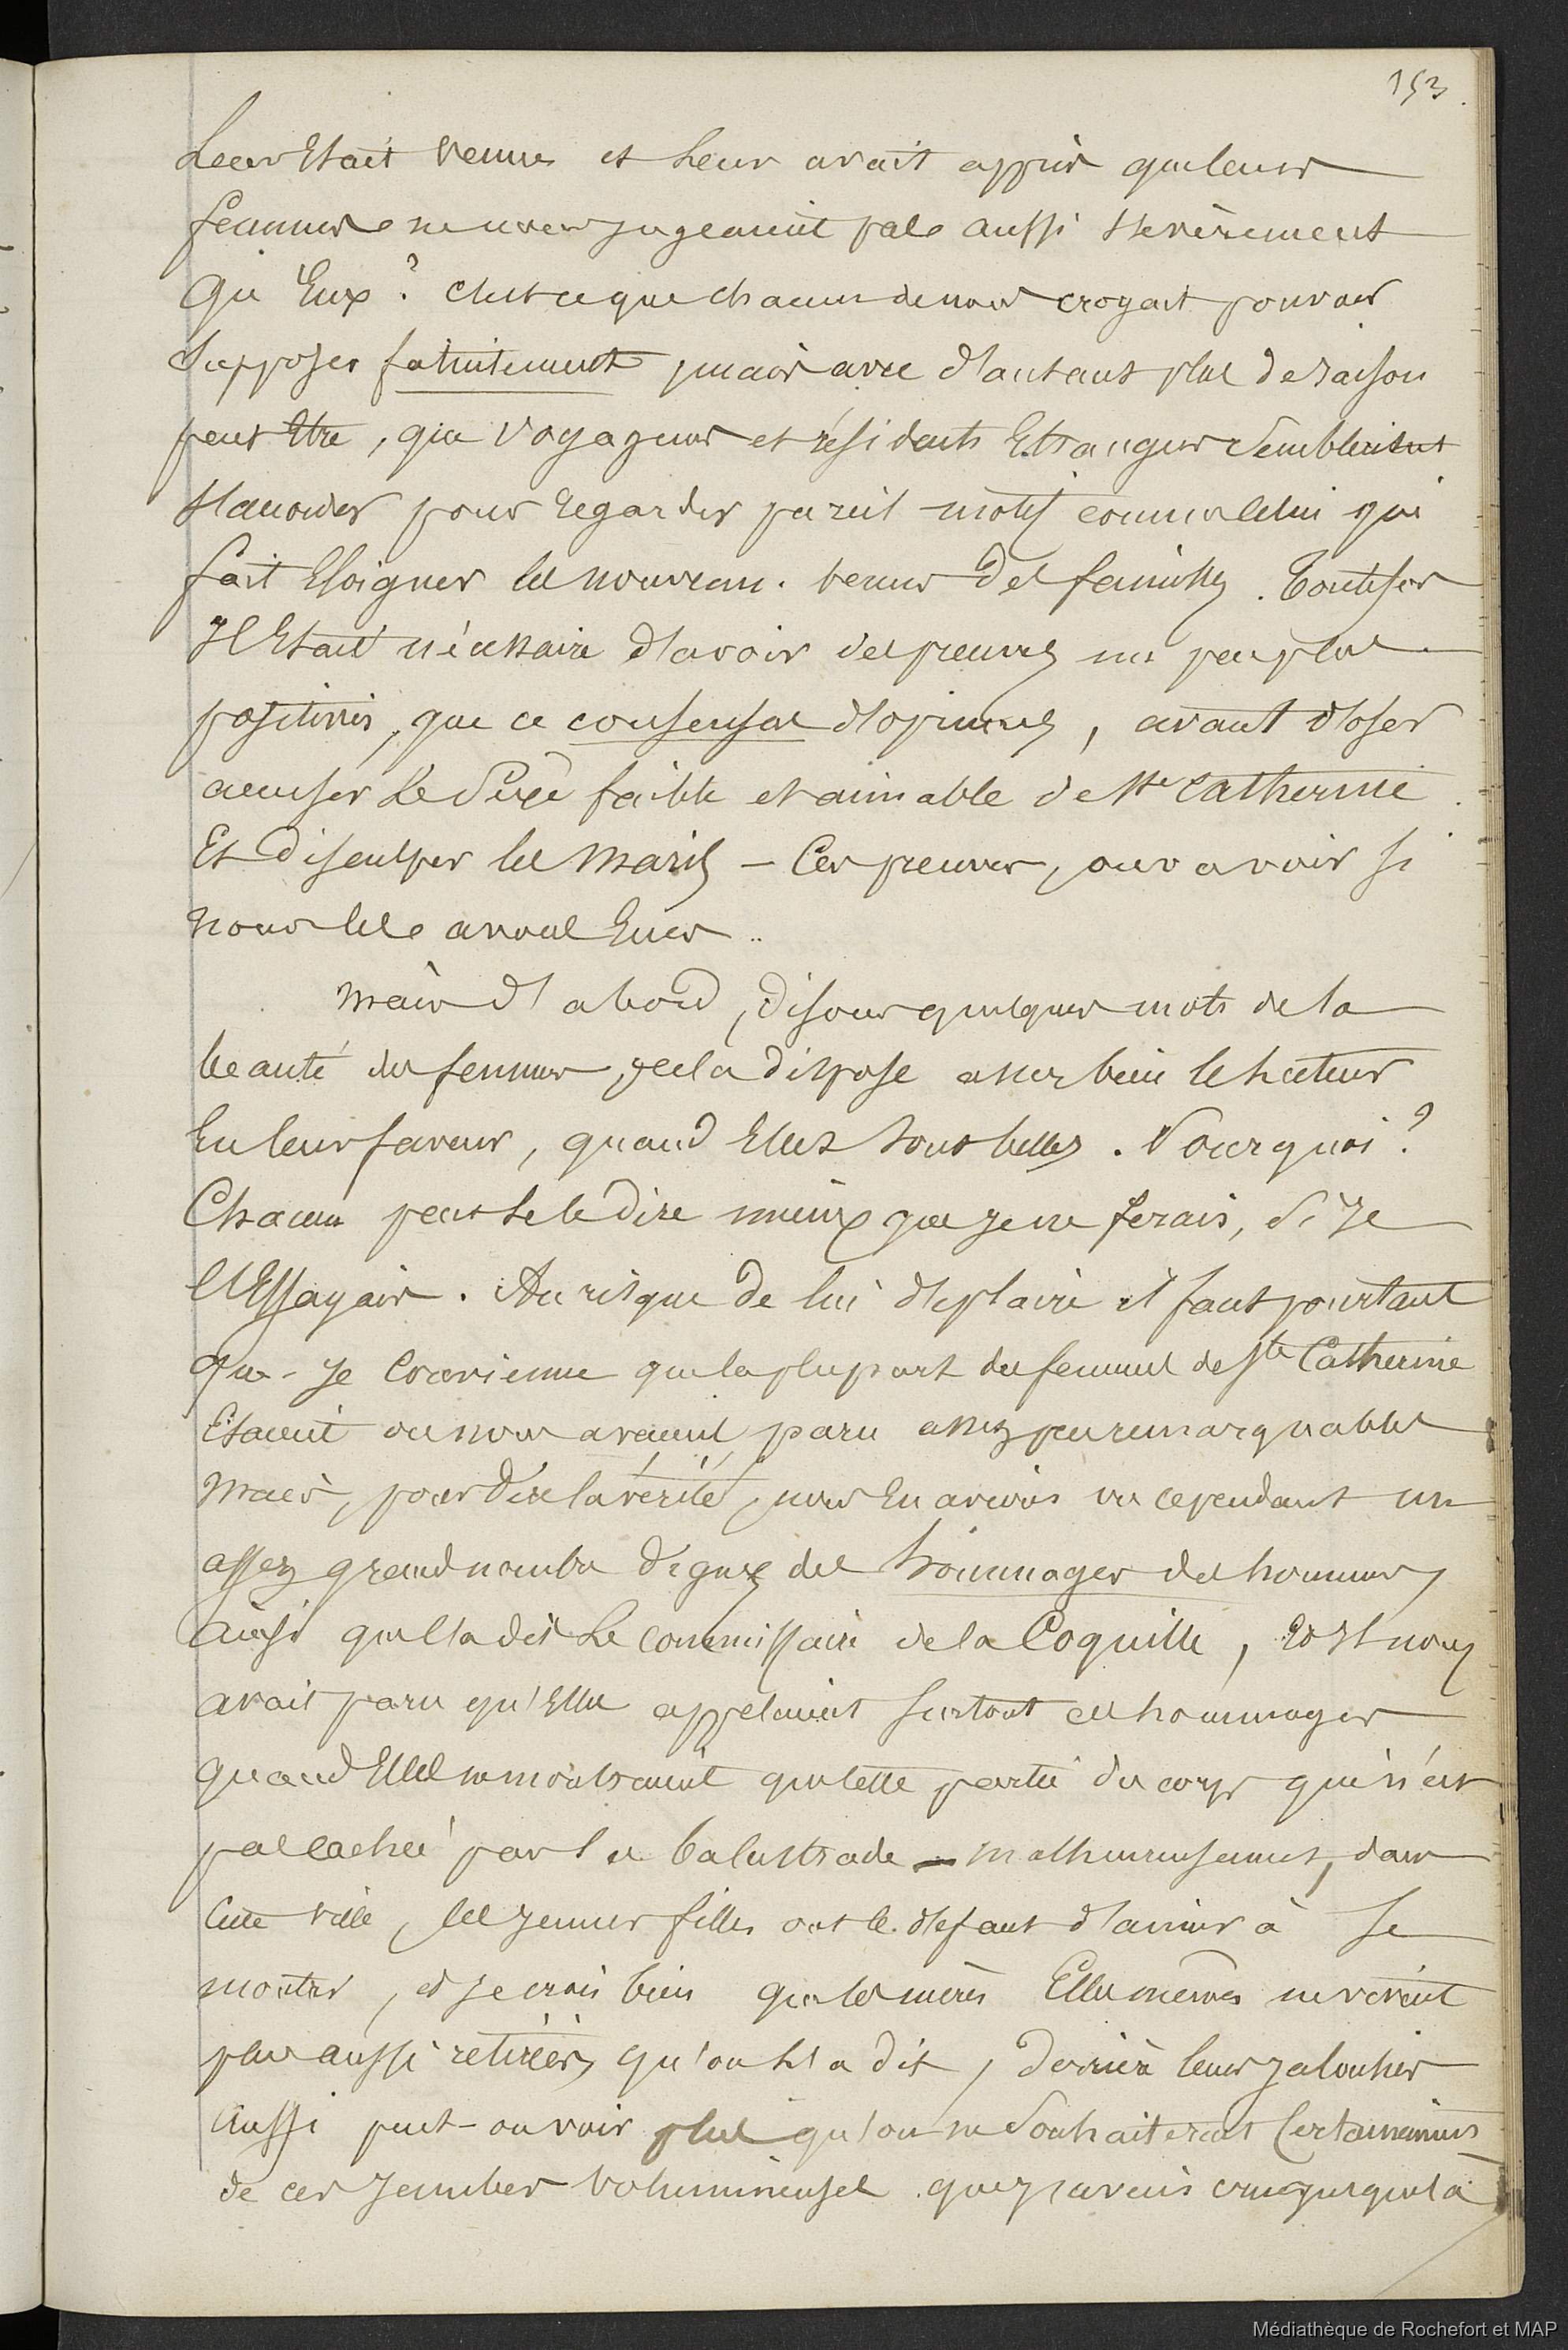 153.
Leur Etait venue et Leur avait appris que leurs
femmes ne nous jugeaient pas aussi sévèrement
Qu'Eux ? C'est ce que chacun de nous croyait pouvoir
Supposer fatuitement, mais avec d'autant plus de raison
peut Etre, que Voyageurs et résidents Etrangers Semblaient
s'accorder pour Regarder pareil motif comme celui qui
fait Eloigner les nouveau-venus des familles. Toutefois
Il Etait nécessaire d'avoir des preuves un peu plus
positives, que ce consensus d'opinions, avant d'oser
accuser Le Sexe faible et aimable de Ste Catherine
Et disculper les Maris – Ces preuves, on va voir si
nous les avons Eues..
Mais d'abord, disons quelques mots de la
beauté des femmes, cela dispose assez bien le lecteur
En leur faveur, quand Elles sont belles. Pourquoi ?
Chacun peut se le dire mieux que je ne ferais, Si je
l'Essayais. Au risque de lui déplaire il faut pourtant
que je convienne que la plupart des femmes de Ste Catherine
Etaient ou nous avaient paru assez peu remarquables
Mais, pour dire la vérité, nous En avions vu cependant un
assez grand nombre dignes des hommages des hommes,
Ainsi que l'a dit Le commissaire de la Coquille, Et Il nous
avait paru qu'Elles appelaient surtout ces hommages
quand Elles ne montraient que cette partie du corps qui n'est
pas cachée par la balustrade – malheureusement, dans
Cette ville, les jeunes filles ont le défaut d'aimer à se
montrer, et je crois bien que les mères Elles mêmes ne vivent
plus aussi retirées, qu'on l'a dit, derrière leurs jalousies
Aussi peut-on voir plus qu'on ne Souhaiterait Certainement
de ces jambes volumineuses que j'avais crues jusque là
Médiathèque de Rochefort et MAP